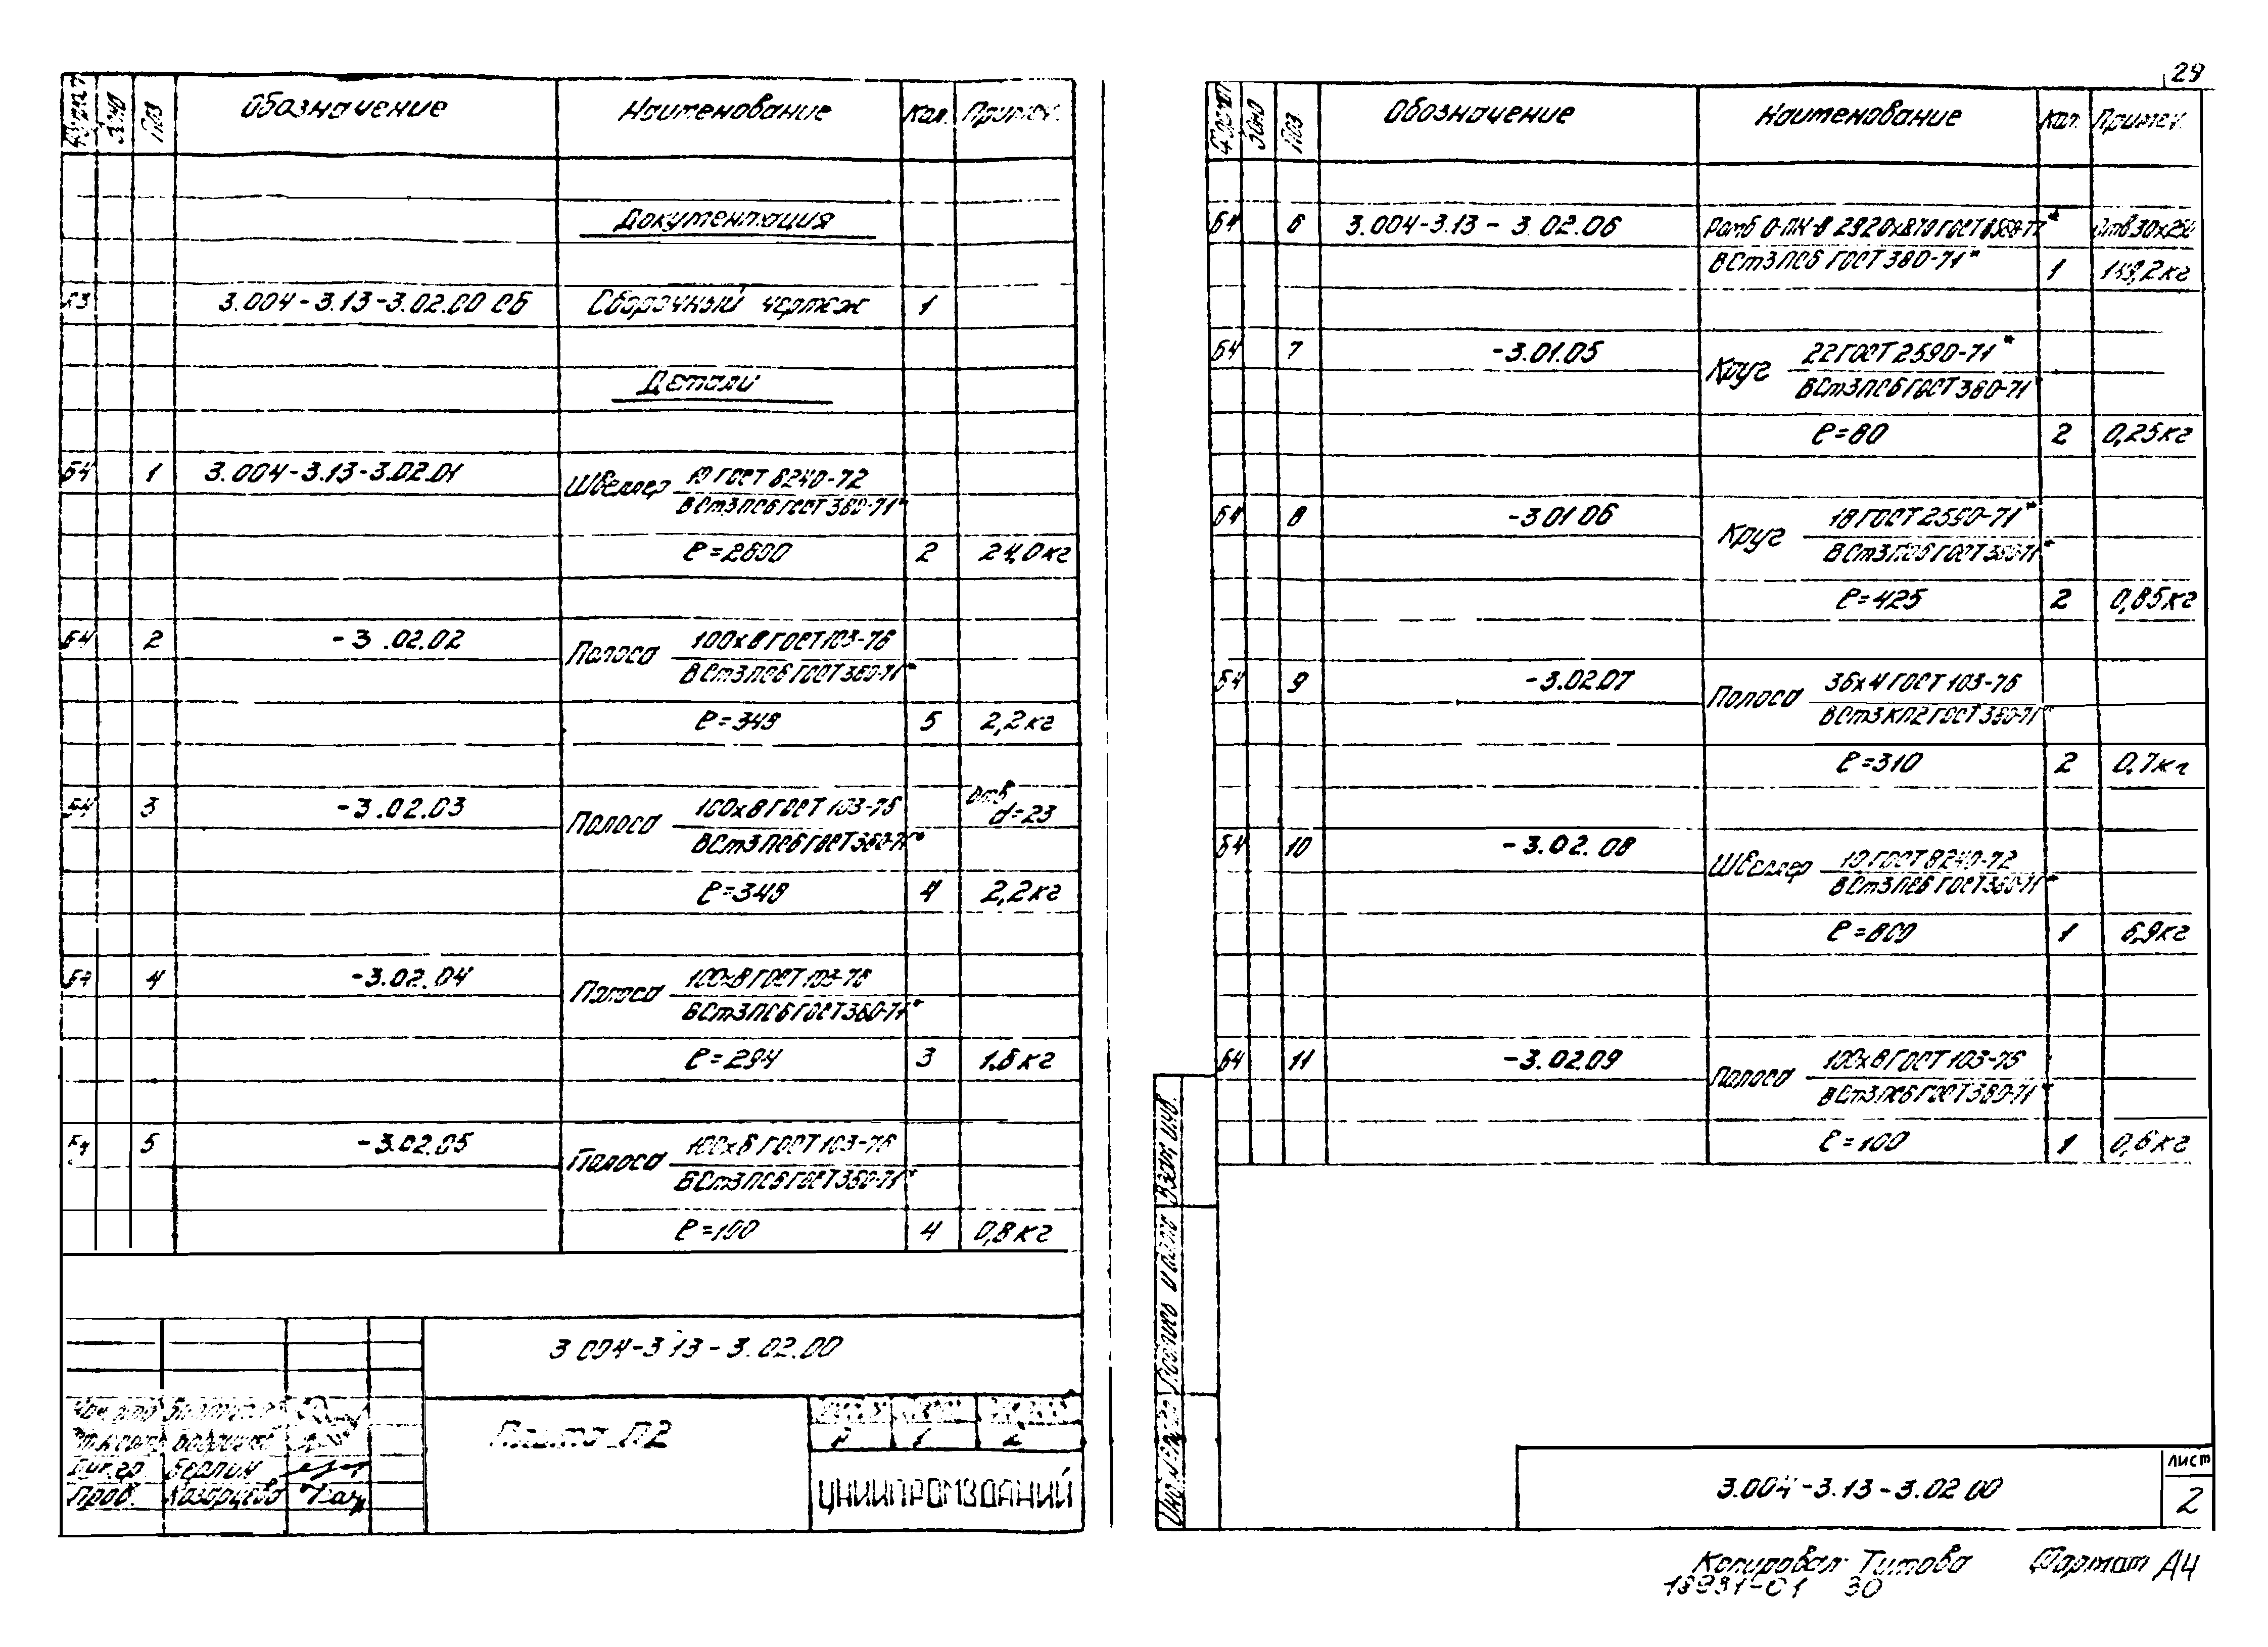 29
Формат Зона Поз Обозначение Наименование Кол. Примеч.
Документация
А3 3.004-3.13-3.02.00 СБ Сборочный чертеж 1
Детали
Б4 1 3.004-3.13-3.02.01 Швеллер 10 ГОСТ 8240-72
ВСт3ПС6 ГОСТ 380-71*
ℓ=2800 2 24,0кг
Б4 2 -3.02.02 Полоса 100х8 ГОСТ 103-76
ВСт3ПС6 ГОСТ 380-71*
ℓ=349 5 2,2кг
Б4 3 -3.02.03 Полоса 100х8 ГОСТ 103-76 отв d=23
ВСт3ПС6 ГОСТ 380-71*
ℓ=349 4 2,2кг
Б4 4 -3.02.04 Полоса 100х8 ГОСТ 103-76
ВСт3ПС6 ГОСТ 380-71*
ℓ=294 3 1.8кг
Б4 5 -3.02.05 Полоса 100х8 ГОСТ 103-76
ВСт3ПС6 ГОСТ 380-71*
ℓ=100 4 0,8кг
3.004-3.13-3.02.00
Плита П2
Р 1 2
Берлин
Пров. Казарцева
ЦНИИПРОМЗДАНИЙ
Формат Зона Поз Обозначение Наименование Кол. Примеч.
Б4 6 3.004-3.13-3.02.06 Ромб О-ПН-8 2920х870 ГОСТ 8568-77* отв 30х250
ВСт3ПС6 ГОСТ 380-71* 1 149,2кг
Б4 7 -3.01.05 Круг 22 ГОСТ 2590-71*
ВСт3ПС6 ГОСТ 380-71*
ℓ=80 2 0,25кг
Б4 8 -3.01.06 Круг 18 ГОСТ 2590-71*
ВСт3ПС6 ГОСТ 380-71*
ℓ=425 2 0,85кг
Б4 9 -3.02.07 Полоса 36х4 ГОСТ 103-76
ВСт3КП2 ГОСТ 380-71*
ℓ=310 2 0,7кг
Б4 10 -3.02.08 Швеллер 10 ГОСТ 8240-72
ВСт3ПС6 ГОСТ 380-71*
ℓ=800 1 6,9кг
Б4 11 -3.02.09 Полоса 100х8 ГОСТ 103-76
ВСт3ПС6 ГОСТ 380-71*
ℓ=100 1 0,6кг
Взам инв.
Подпись и дата
3.004-3.13-3.02.00
лист
2
Копировал Титова Формат А4
18981-01 30